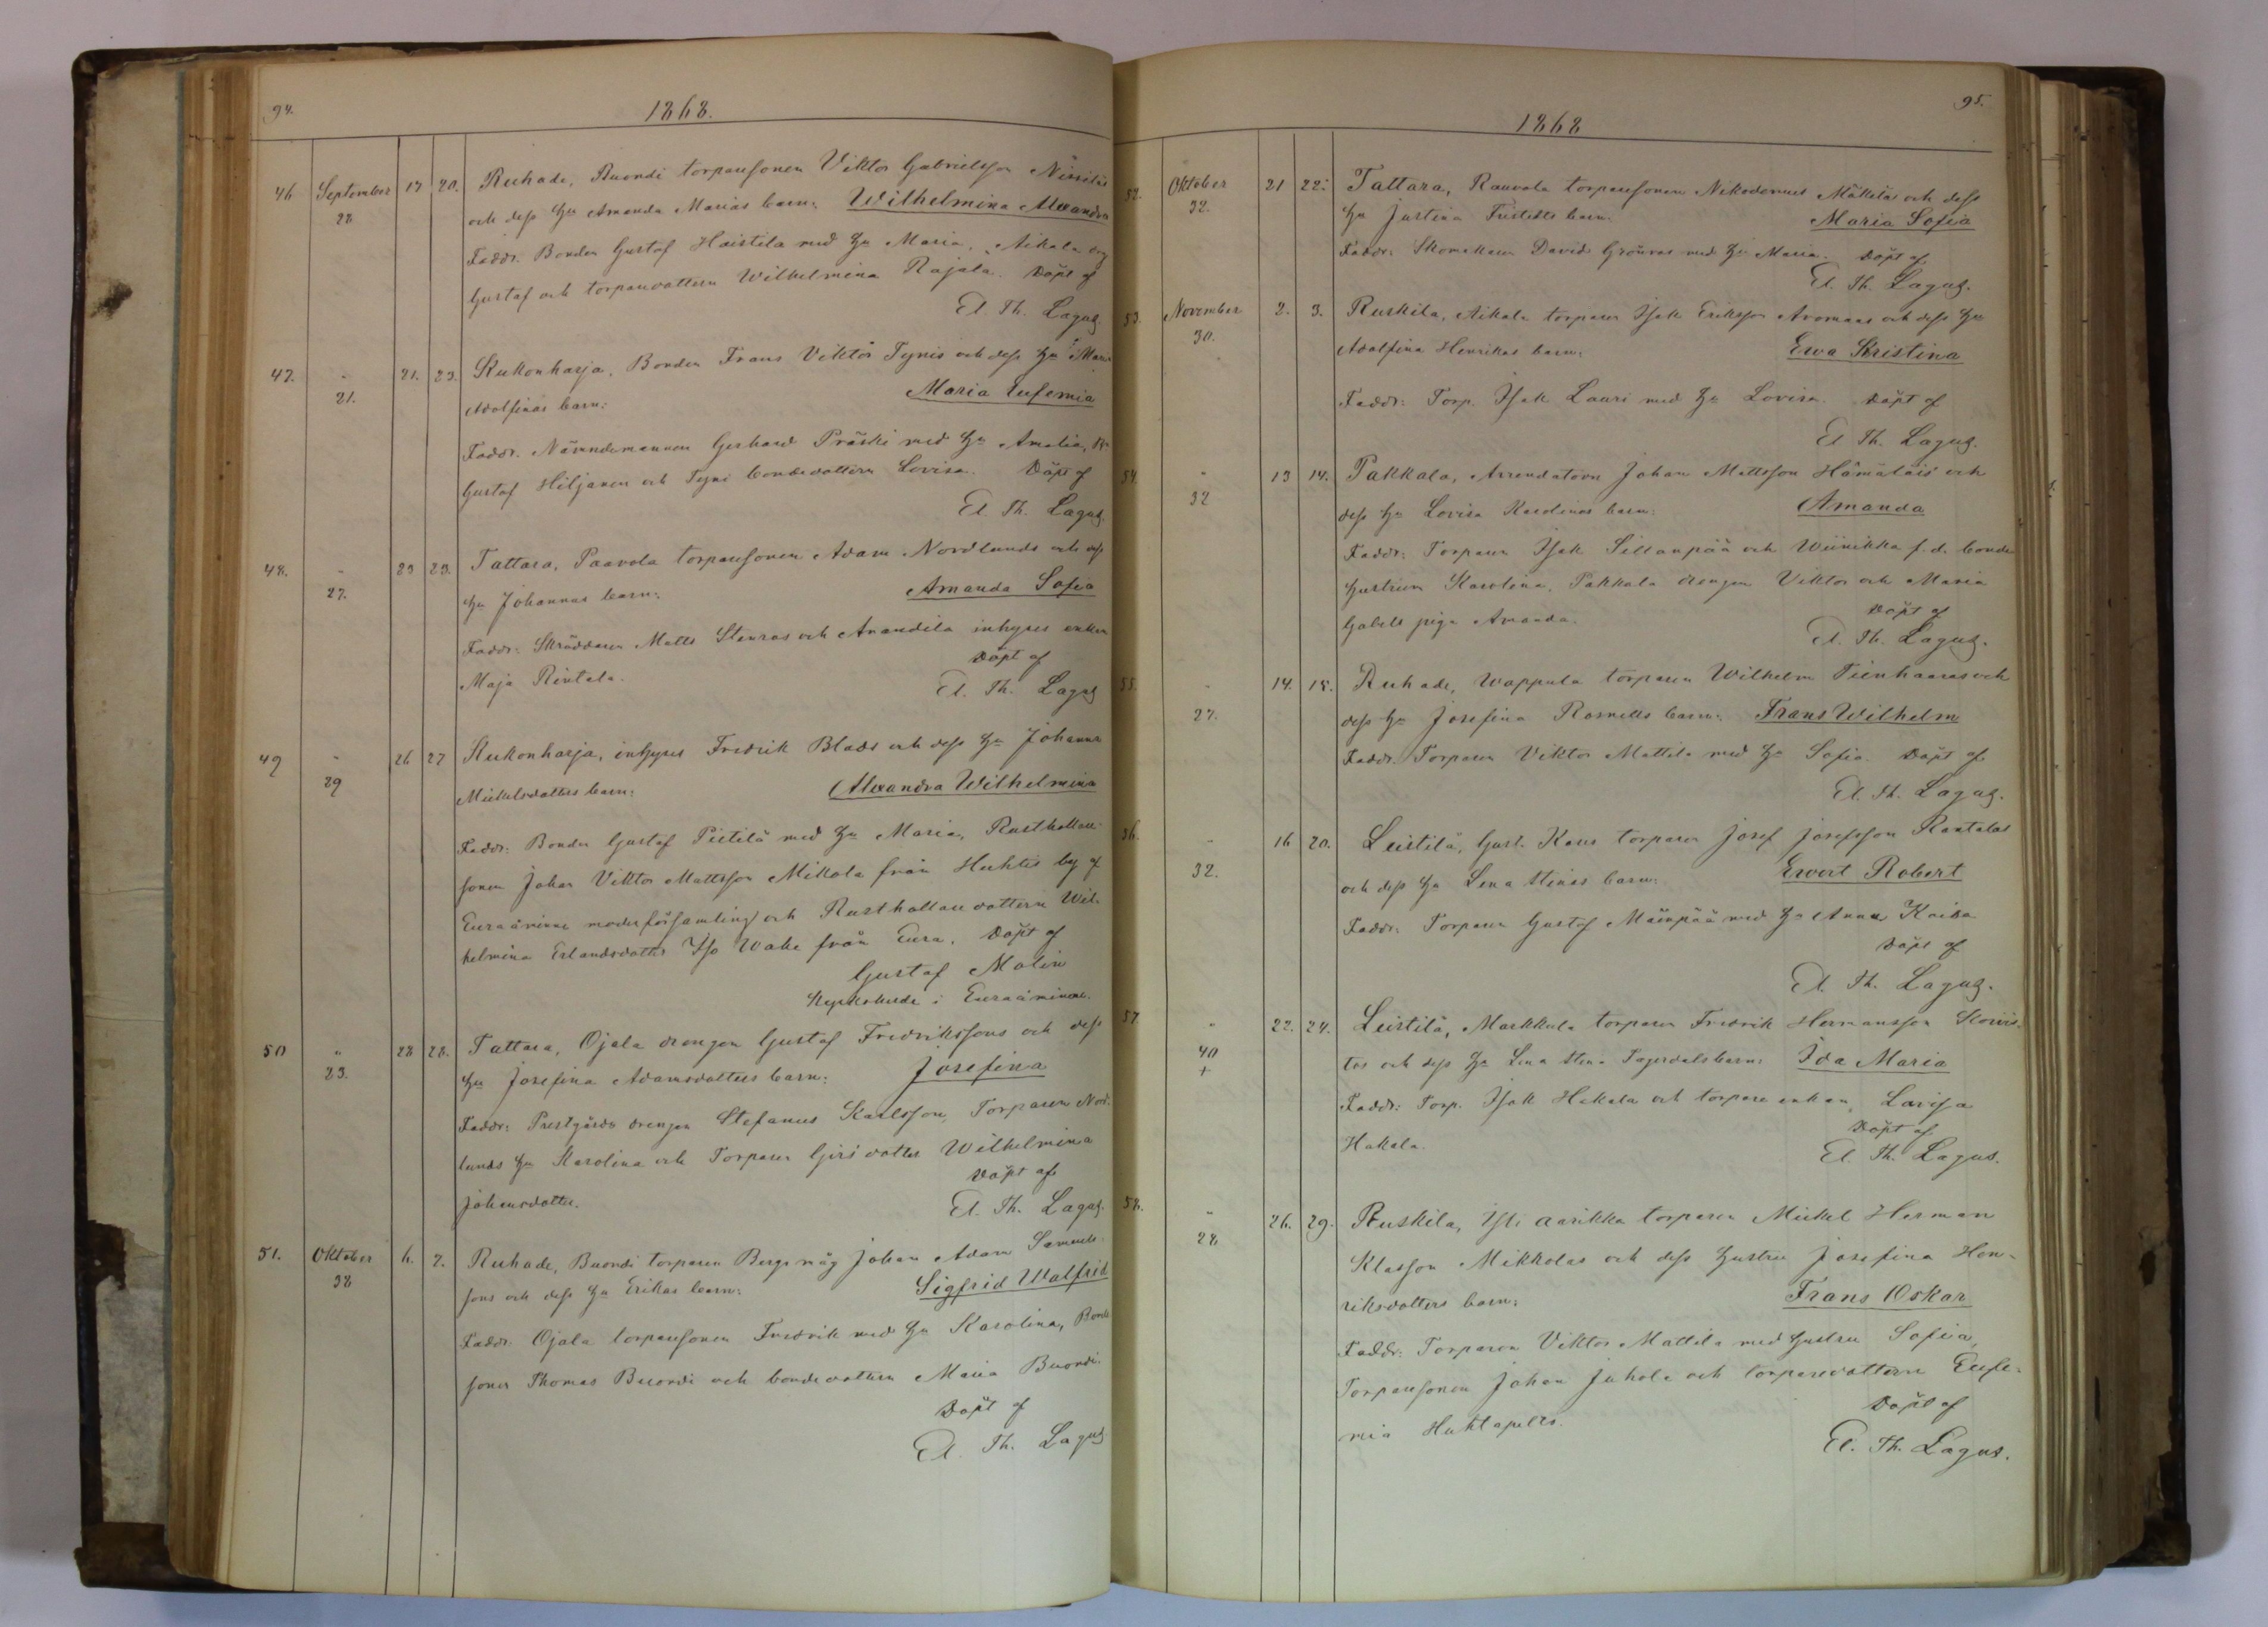 94.
1868.
46 September 19 20. Ruhade, Buondi torparesonen Viktor Gabrielsson Nissilas
28 och dess Hu Amanda Marias barn: Wilhelmina Alexandra
Faddr. Bonden Gustaf Haistila med Hu Maria, Aikala drg
Gustaf och torparedottern Wilhelmina Rajala. Döpt af
El. Th. Lagus
47. " 21. 23. Kukonharja, Bonden Frans Viktor Tynis och dess Hu Maria
21. Adolfinas barn: Maria Eufemia
Faddr. Nämndemannen Gerhard Präski med Hu Amalia,
Gustaf Hiljanen och Tyni bondedottern Lovisa. Döpt af
El. Th. Lagus.
48. " 23 23. Tattara, Paavola torparesonen Adam Nordlunds och dess
27. Hu Johannas barn: Amanda Sofia
Faddr: Skräddaren Matts Stenros och Anandila inhyses enkan
Maja Rintala. Döpt af
El. Th. Lagus
49 " 26 27 Kukonharja, inhyses Fredrik Blads och dess Hu Johanna
29 Mickelsdotters barn: Alexandra Wilhelmina
Faddr: Bonden Gustaf Pietilä med Hu Maria, Rusthållare
sonen Johan Viktor Mattsson Mikola från Huhtis by af
Euraåminne moderförsamling och Rusthållaredottern Wil-
helmina Erlandsdotter Iso Wahe från Eura. Döpt af
Gustaf Molin
Kyrkoherde i Euraåminne.
50 " 28 28. Tattara, Ojala drengen Gustaf Fredrikssons och dess
23. Hu Josefina Adamsdotters barn: Josefina
Faddr: Prestgårds drengen Stefanus Karlsson, Torparen Nord-
lunds Hu Karolina och Torparen Girs dotter Wilhelmina
Johansdotter. Döpt af
El. Th. Lagus.
51. Oktober 6. 7. Ruhade, Buondi torparen Bergs måg Johan Adam Samuels-
38 sons och dess Hu Erikas barn: Sigfrid Walfrid
Faddr. Ojala torparesonen Fredrik med Hu Karolina, Bonde
sonen Thomas Buondi och bondedottern Maria Buondi.
Döpt af
El. Th. Lagus
95.
1868
52. Oktober 21 22. Tattara, Rauvola torparesonen Nikodemus Mäkeläs och dess
32. Hu Justina Fristedts barn: Maria Sofia
Faddr: Skomakaren David Grönroos med Hu Maria. Döpt af
El. Th. Lagus.
53. November 2. 3. Ruskila, Aikala torparen Isak Eriksson Avomaas och dess Hu
30. Adolfina Henrikas barn: Ewa Kristina
Faddr: Torp. Isak Lauri med Hu Lovisa. Döpt af
El Th. Lagus.
54. " 13 14. Pakkala, Arrendatorn Johan Mattsson Hämäläis och
32 dess Hu Lovisa Karolinas barn: Amanda
Faddr: Torparen Isak Sillanpää och Wiinikka f.d. bonde
hustrun Karolina, Pakkala drengen Viktor och Maria
Gabels piga Amanda. Döpt af
El. Th. Lagus.
55. " 14. 15. Ruhade, Wappula torparen Wilhelm Tienhaaras och
27. dess Hu Josefina Rosnells barn: Frans Wilhelm
Faddr. Torparen Viktor Mattila med Hu Sofia. Döpt af
El. Th. Lagus.
56. " 16 20. Leistilä, Gust. Kaus torparen Josef Josefsson Rantalas
32. och dess Hu Lena Stinas barn: Ewert Robert
Faddr: Torparen Gustaf Mäenpää med Hu Anna Kaisa
Döpt af
El. Th. Lagus.
57. " 22. 24. Leistilä, Markkula torparen Fredrik Hermansson Koivis-
40 tos och dess Hu Lena Stina Tagerdals barn: Ida Maria
+
Faddr: Torp. Isak Hakala och torpare enkan Lovisa
Hakala. Döpt af
El. Th. Lagus.
58. " 26. 29. Ruskila, Yli Aarikka torparen Mickel Herman
28 Klasson Mikkolas och dess hustru Josefina Hen-
riksdotters barn: Frans Oskar
Faddr: Torparen Viktor Mattila med hustru Sofia,
Torparesonen Johan Juhola och torparedottern Eufe-
mia Huhtapelto. Döpt af
El. Th. Lagus.